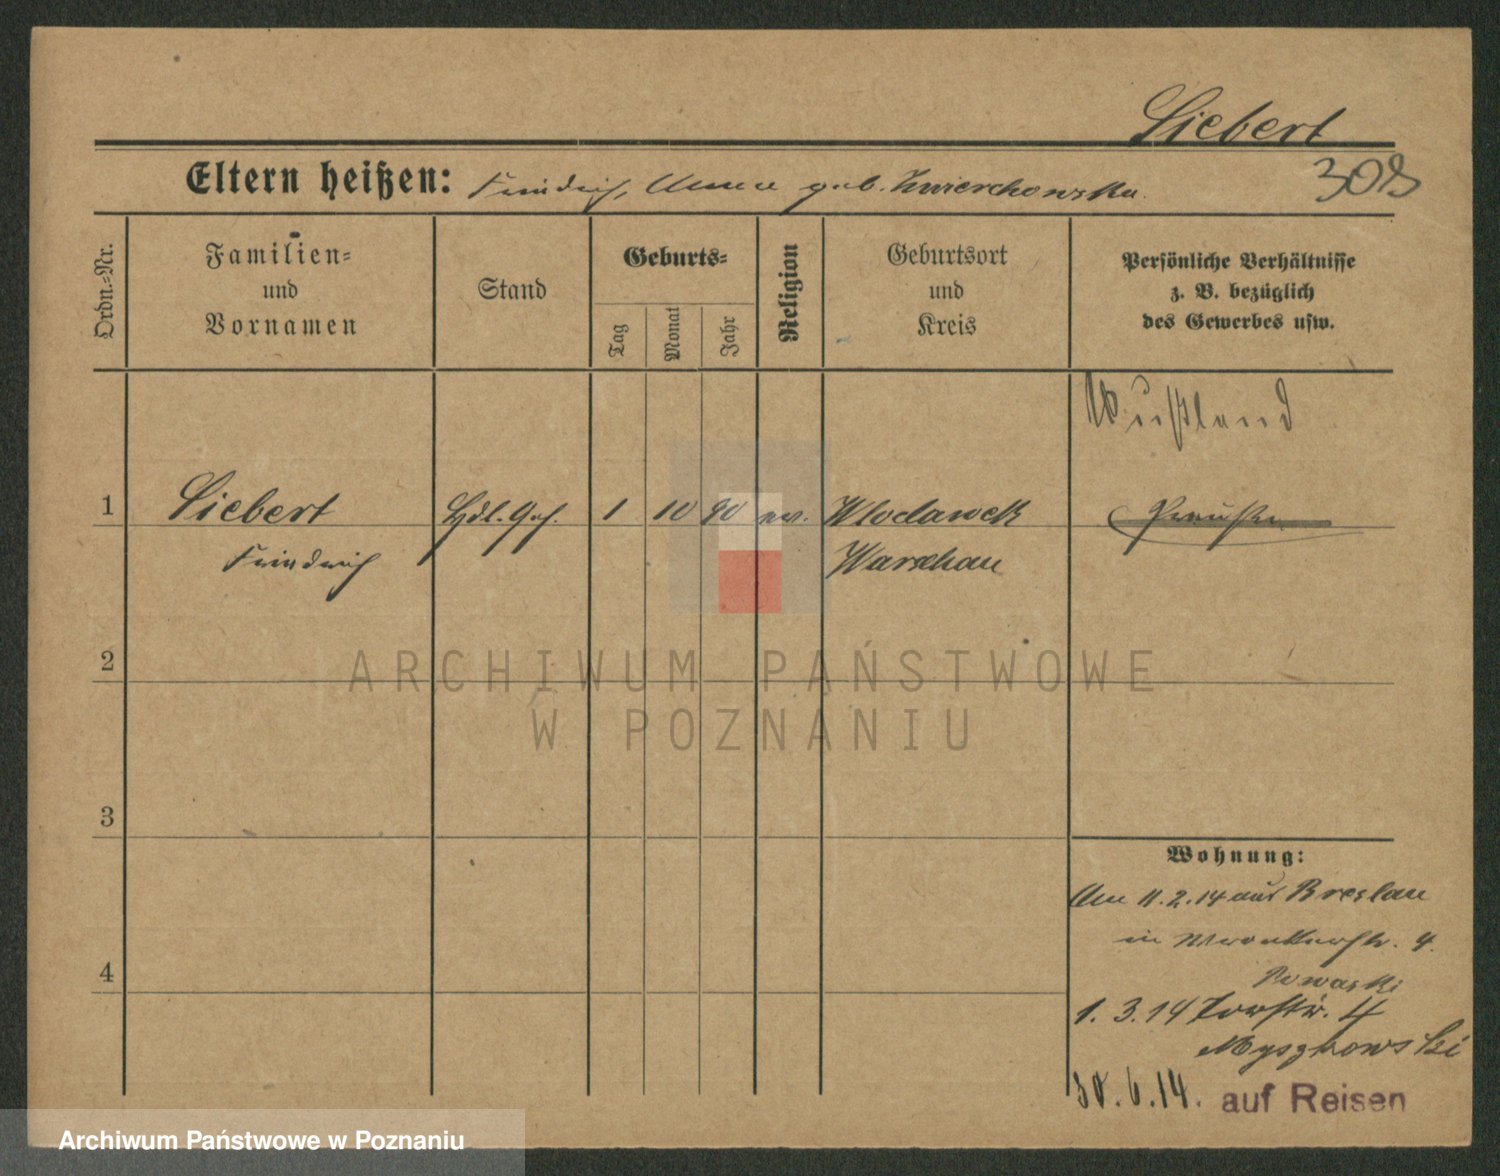 Siebert
308
Eltern heißen: Friedrich, Anna geb. Zwierchowska.
Ordn.-Nr.
Familien-
und
Vornamen
Stand
Geburts-
Tag
Monat
Jahr
Religion
Geburtsort
und
Kreis
Persönliche Verhältnisse
z. B. bezüglich
des Gewerbes usw.
Rußland
1 Siebert Hdl. Geh. 1 10 90 ev. Wloclawek Preuße
Friedrich Warschau
2
3
4
Wohnung:
Am 11.2.14 aus Breslau
in Wronkerstr. 4.
Nowaski
1.3.14 Torstr. 4
Myszkowski
30.6.14. auf Reisen
ARCHIWUM PAŃSTWOWE
W POZNANIU
Archiwum Państwowe w Poznaniu